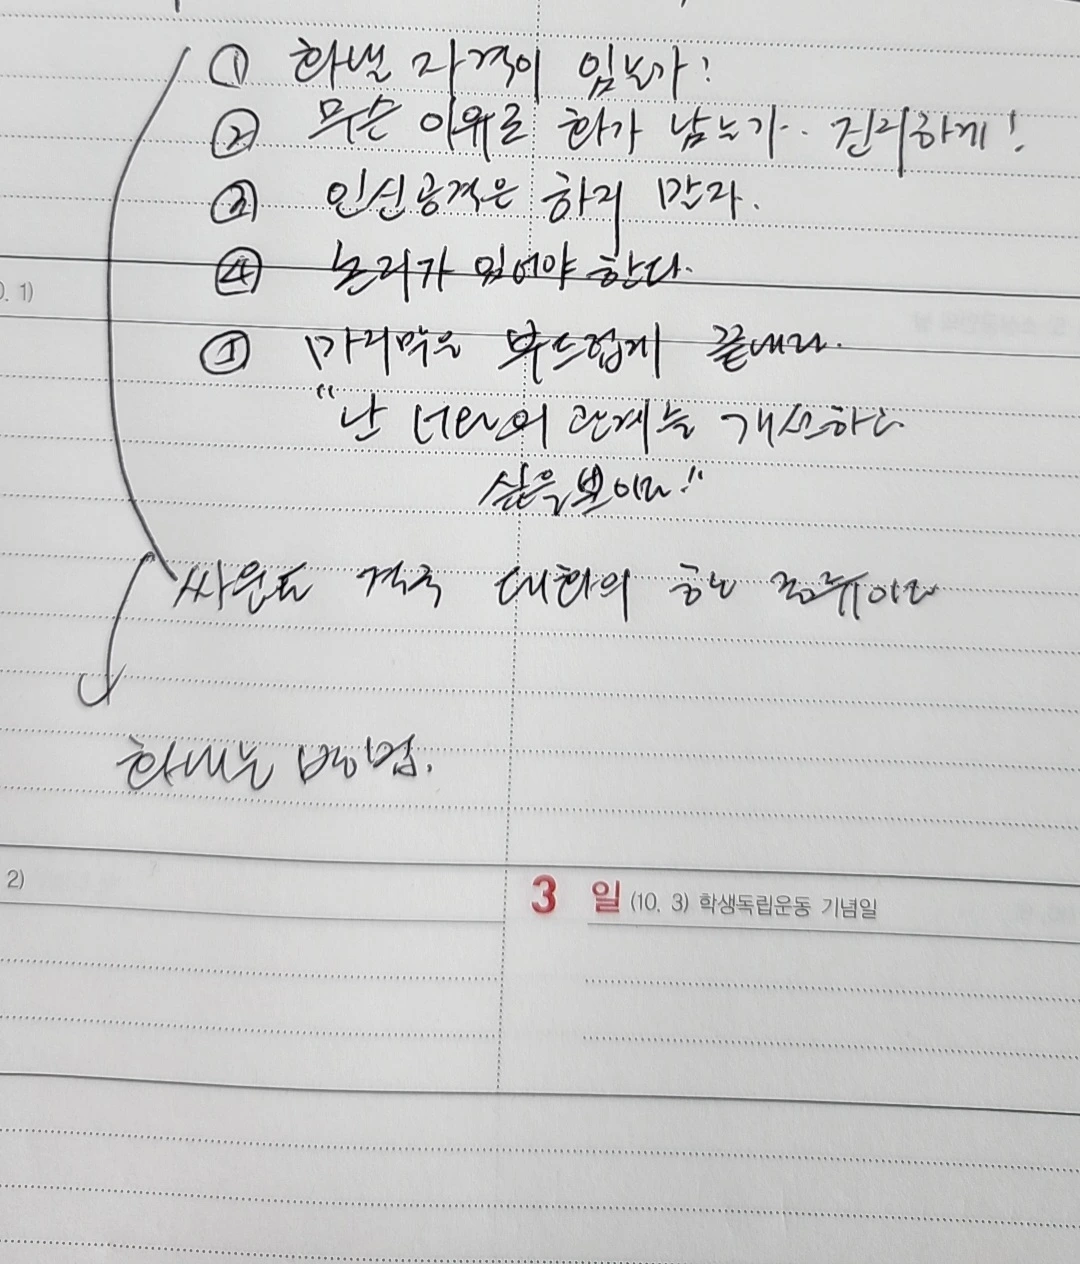 ① 화낼 자격이 있는가!
② 무슨 이유로 화가 났는가.. 진지하게!
③ 인신공격은 하지 마라.
④ 논리가 있어야 한다.
0. 1)
⑤ 마지막은 부드럽게 끝내라.
"난 너와의 관계를 개선하고
싶을뿐이다!"
싸움도 결국 대화의 한 종류이다
화내는 방법.
2)
3 일 (10. 3) 학생독립운동 기념일